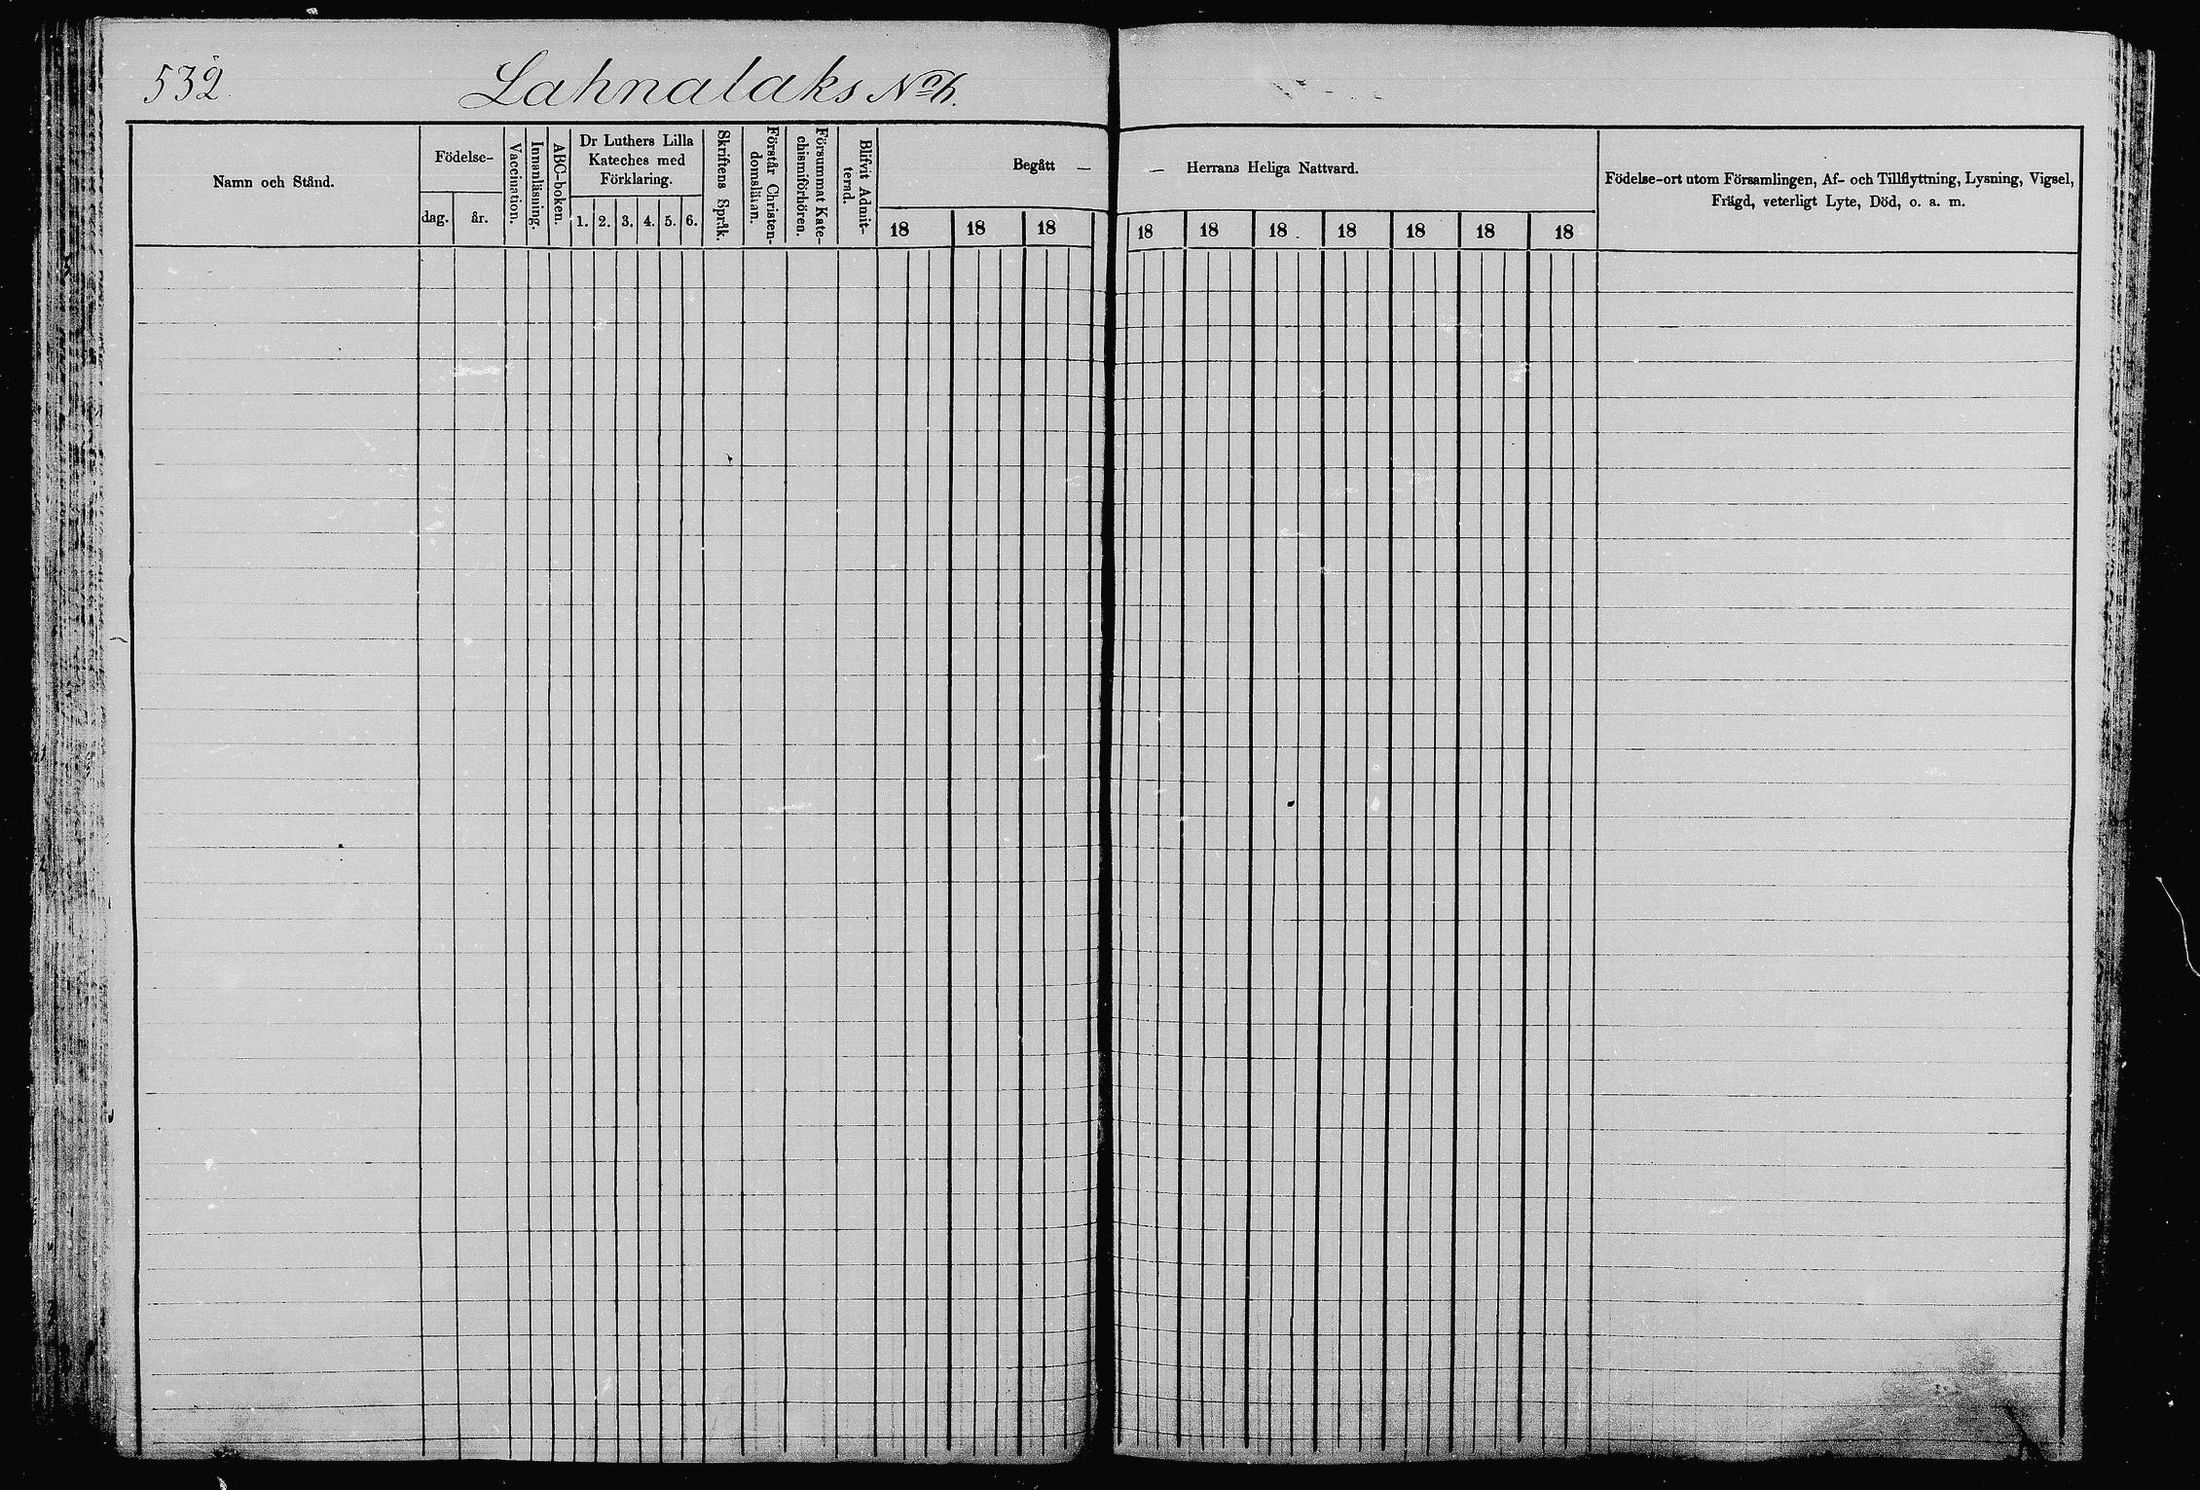 532.
Lahnalaks No 6.
Namn och Stånd.
Födelse-
dag.
år.
Vaccination.
Innanläsning.
ABC-boken.
Dr Luthers Lilla
Kateches med
Förklaring.
1. 2. 3. 4. 5. 6.
Skriftens Språk.
Förstår Christen-
domsläran.
Försummat Kate-
chismiförhören.
Blifvit Admit-
terad.
Begått —
18 18 18
— Herrans Heliga Nattvard.
18 18 18 18 18 18 18
Födelse-ort utom Församlingen, Af- och Tillflyttning, Lysning, Vigsel,
Frägd, veterligt Lyte, Död, o. a. m.